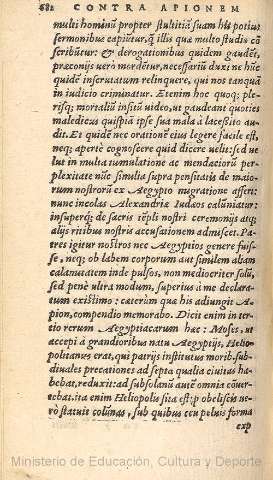 682 CONTRA APIONEM
multi hominū propter stultitiā suam his potius
sermonibus capiūtur, q̃ illis quæ multo studio cō
scribūtur: & derogationibus quidem gaudēt,
præconijs uerò mordētur, necessariū duxi ne hūc
quidē inscrutatum relinquere, qui nos tanquā
in iudicio criminatur. Etenim hoc quoq; ple-
risq; mortaliū insitū uideo, ut gaudeant quoties
maledicus quispiā ipse sua mala à lacessito au-
dit. Et quidē nec orationē eius legere facile est,
neq; apertè cognoscere quid dicere uelit: sed ue
lut in multa tumulatione ac mendaciorū per-
plexitate nūc similia supra pensitatis de maio-
rum nostrorū ex Aegypto migratione affert:
nunc incolas Alexandriæ Iudæos calūniatur:
insuperq; de sacris tēpli nostri ceremonijs atq;
alijs ritibus nostris accusationem admiscet. Pa-
tres igitur nostros nec Aegyptios genere fuis-
se, neq; ob labem corporum aut similem aliam
calamitatem inde pulsos, non mediocriter solū,
sed penè ultra modum, superius à me declara-
tum existimo: cæterùm quæ his adiungit A-
pion, compendio memorabo. Dicit enim in ter-
tio rerum Aegyptiacarum hæc: Moses, ut
accepi à grandioribus natu Aegyptijs, Helio-
politanus erat, qui patrijs institutus morib. sub-
diuales precationes ad septa qualia ciuitas ha-
bebat, reduxit: ad subsolanū autē omnia cōuer-
tebat. ita enim Heliopolis sita est: p obeliscis ue-
rò statuit colūnas, sub quibus ceu peluis forma
exp
Ministerio de Educación, Cultura y Deporte